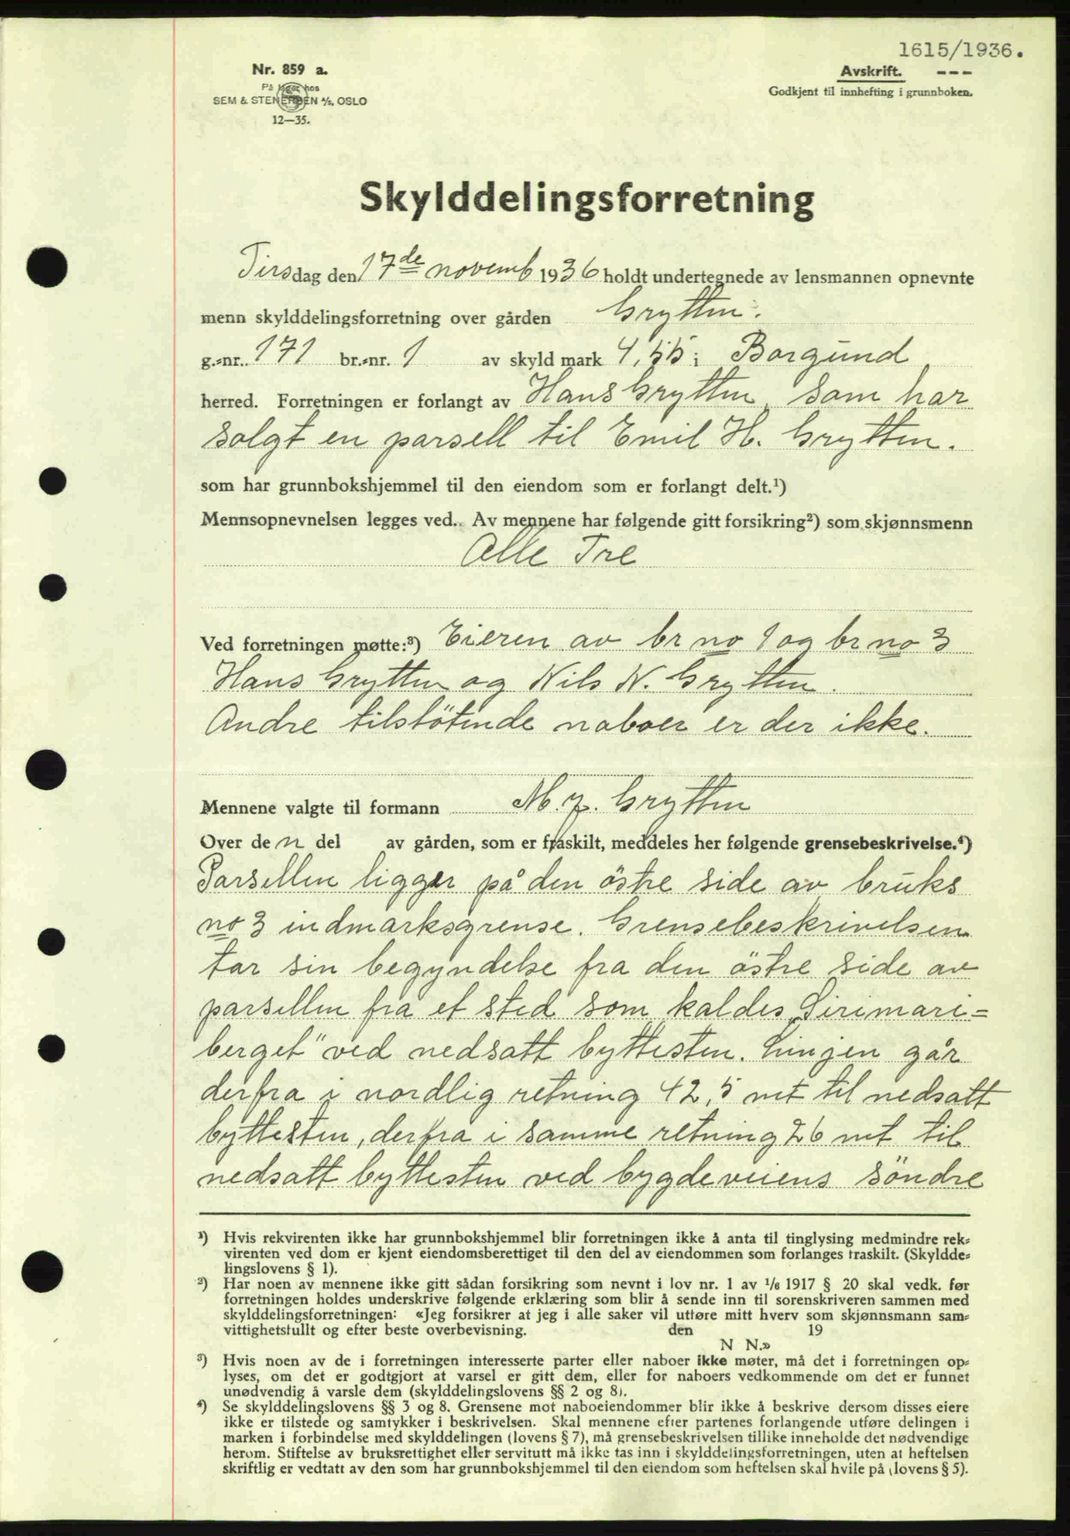 1615/1936.
Nr. 859 a.
På lager hos
SEM & STENERSEN A/S, OSLO
12—35.
Avskrift. ---
Godkjent til innhefting i grunnboken.
Skylddelingsforretning
Tirsdag den 17de novemb 1936 holdt undertegnede av lensmannen opnevnte
menn skylddelingsforretning over gården Grytten.
g.-nr. 171 br.-nr. 1 av skyld mark 4,55 i Borgund
herred. Forretningen er forlangt av Hans Grytten, som har
solgt en parsell til Emil H. Grytten.
som har grunnbokshjemmel til den eiendom som er forlangt delt.¹)
Mennsopnevnelsen legges ved. Av mennene har følgende gitt forsikring²) som skjønnsmenn
Alle Tre
Ved forretningen møtte:³) Eieren av br no 1 og br no 3
Hans Grytten og Nils N. Grytten.
Andre tilstötende naboer er der ikke.
Mennene valgte til formann M. J. Grytten
Over den del av gården, som er fraskilt, meddeles her følgende grensebeskrivelse.⁴)
Parsellen ligger på den östre side av bruks
no 3 indmarksgrense. Grensebeskrivelsen
tar sin begyndelse fra den östre side av
parsellen fra et sted som kaldes „Sirimari=
berget" ved nedsatt byttesten. Linjen går
derfra i nordlig retning 42,5 met til nedsatt
byttesten, derfra i samme retning 26 met til
nedsatt byttesten ved bygdeveiens söndre
¹) Hvis rekvirenten ikke har grunnbokshjemmel blir forretningen ikke å anta til tinglysing medmindre rek-
virenten ved dom er kjent eiendomsberettiget til den del av eiendommen som forlanges fraskilt. (Skyldde-
lingslovens § 1).
²) Har noen av mennene ikke gitt sådan forsikring som nevnt i lov nr. 1 av 1/6 1917 § 20 skal vedk. før
forretningen holdes underskrive følgende erklæring som blir å sende inn til sorenskriveren sammen med
skylddelingsforretningen: «Jeg forsikrer at jeg i alle saker vil utføre mitt hverv som skjønnsmann sam-
vittighetsfullt og efter beste overbevisning. den 19
N N.»
³) Hvis noen av de i forretningen interesserte parter eller naboer ikke møter, må det i forretningen op-
lyses, om det er godtgjort at varsel er gitt dem, eller for naboers vedkommende om det er funnet
unødvendig å varsle dem (skylddelingslovens §§ 2 og 8).
⁴) Se skylddelingslovens §§ 3 og 8. Grensene mot naboeiendommer blir ikke å beskrive dersom disses eiere
ikke er tilstede og samtykker i beskrivelsen. Skal mennene efter partenes forlangende utføre delingen i
marken i forbindelse med skylddelingen (lovens § 7), må grensebeskrivelsen tillike inneholde det nødvendige
herom. Stiftelse av bruksrettighet eller servitutt må ikke tas inn i skylddelingsforretningen, uten at heftelsen
skriftlig er vedtatt av den som har grunnbokshjemmel til den eiendom som heftelsen skal hvile på (lovens § 5).